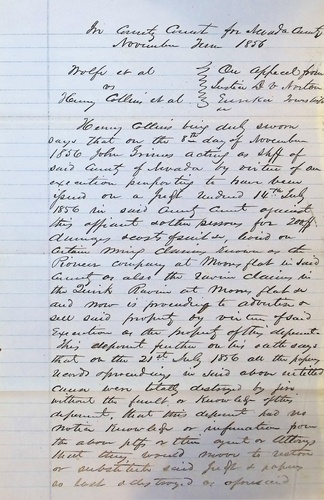 In County Court for Nevada County
November Term 1856
Wolfe et al
vs
Henry Collins et al
On Appeal from
Justice D V Norton
Eureka Township
Henry Collins being duly sworn
says that on the 8th day of November
1856 John Grimes acting as Shff of
said County of Nevada by virtue of an
execution purporting to have been
issued on a Judt rendered 14th July
1856 in said County Court against
this affiant & other persons for 200$
damages & cost of suit &c, levied on
certain mining claims known as the
Pioneer company at Moores flat in said
County as also the Ravine claims in
the Ravine at Moores flat &c
and now is proceeding to advertise &
sell said property by virtue of said
Execution as the property of this deponent
This deponent further on his oath says
that on the 21st July 1856 all the papers
records & proceeding in said above entitled
cause were totally destroyed by fire
without the fault or knowledge of this
deponent, that this deponent had no
notice knowledge or information from
the above pltfs or their agent or Attorney
that they would move to restore
or substitute said Judt & papers
so lost & destroyed as aforesaid